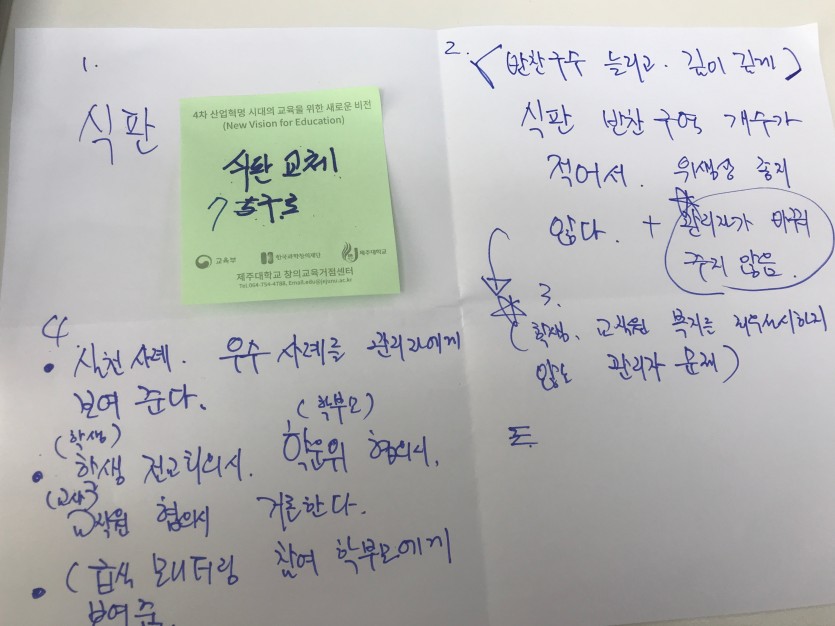 1.
식판
4차 산업혁명 시대의 교육을 위한 새로운 비전
(New Vision for Education)
식판 교체
7구로
교육부 한국과학창의재단 제주대학교
제주대학교 창의교육거점센터
Tel.064-754-4788, Email.edu@jejunu.ac.kr
2. (반찬구수 늘리고. 깊이 깊게)
식판 반찬 구역 개수가
적어서. 위생상 좋지
않다. + 관리자가 바꿔
주지 않음.
3.
(학생, 교직원 복지를 최우선시하지
않는 관리자 문제)
4
• 실천사례. 우수 사례를 관리자에게
보여 준다.
(학생) (학부모)
• 학생 전교회의시. 학운위 협의시,
(교사)
교직원 협의시 거론한다.
• (급식 모니터링 참여 학부모에게
보여준